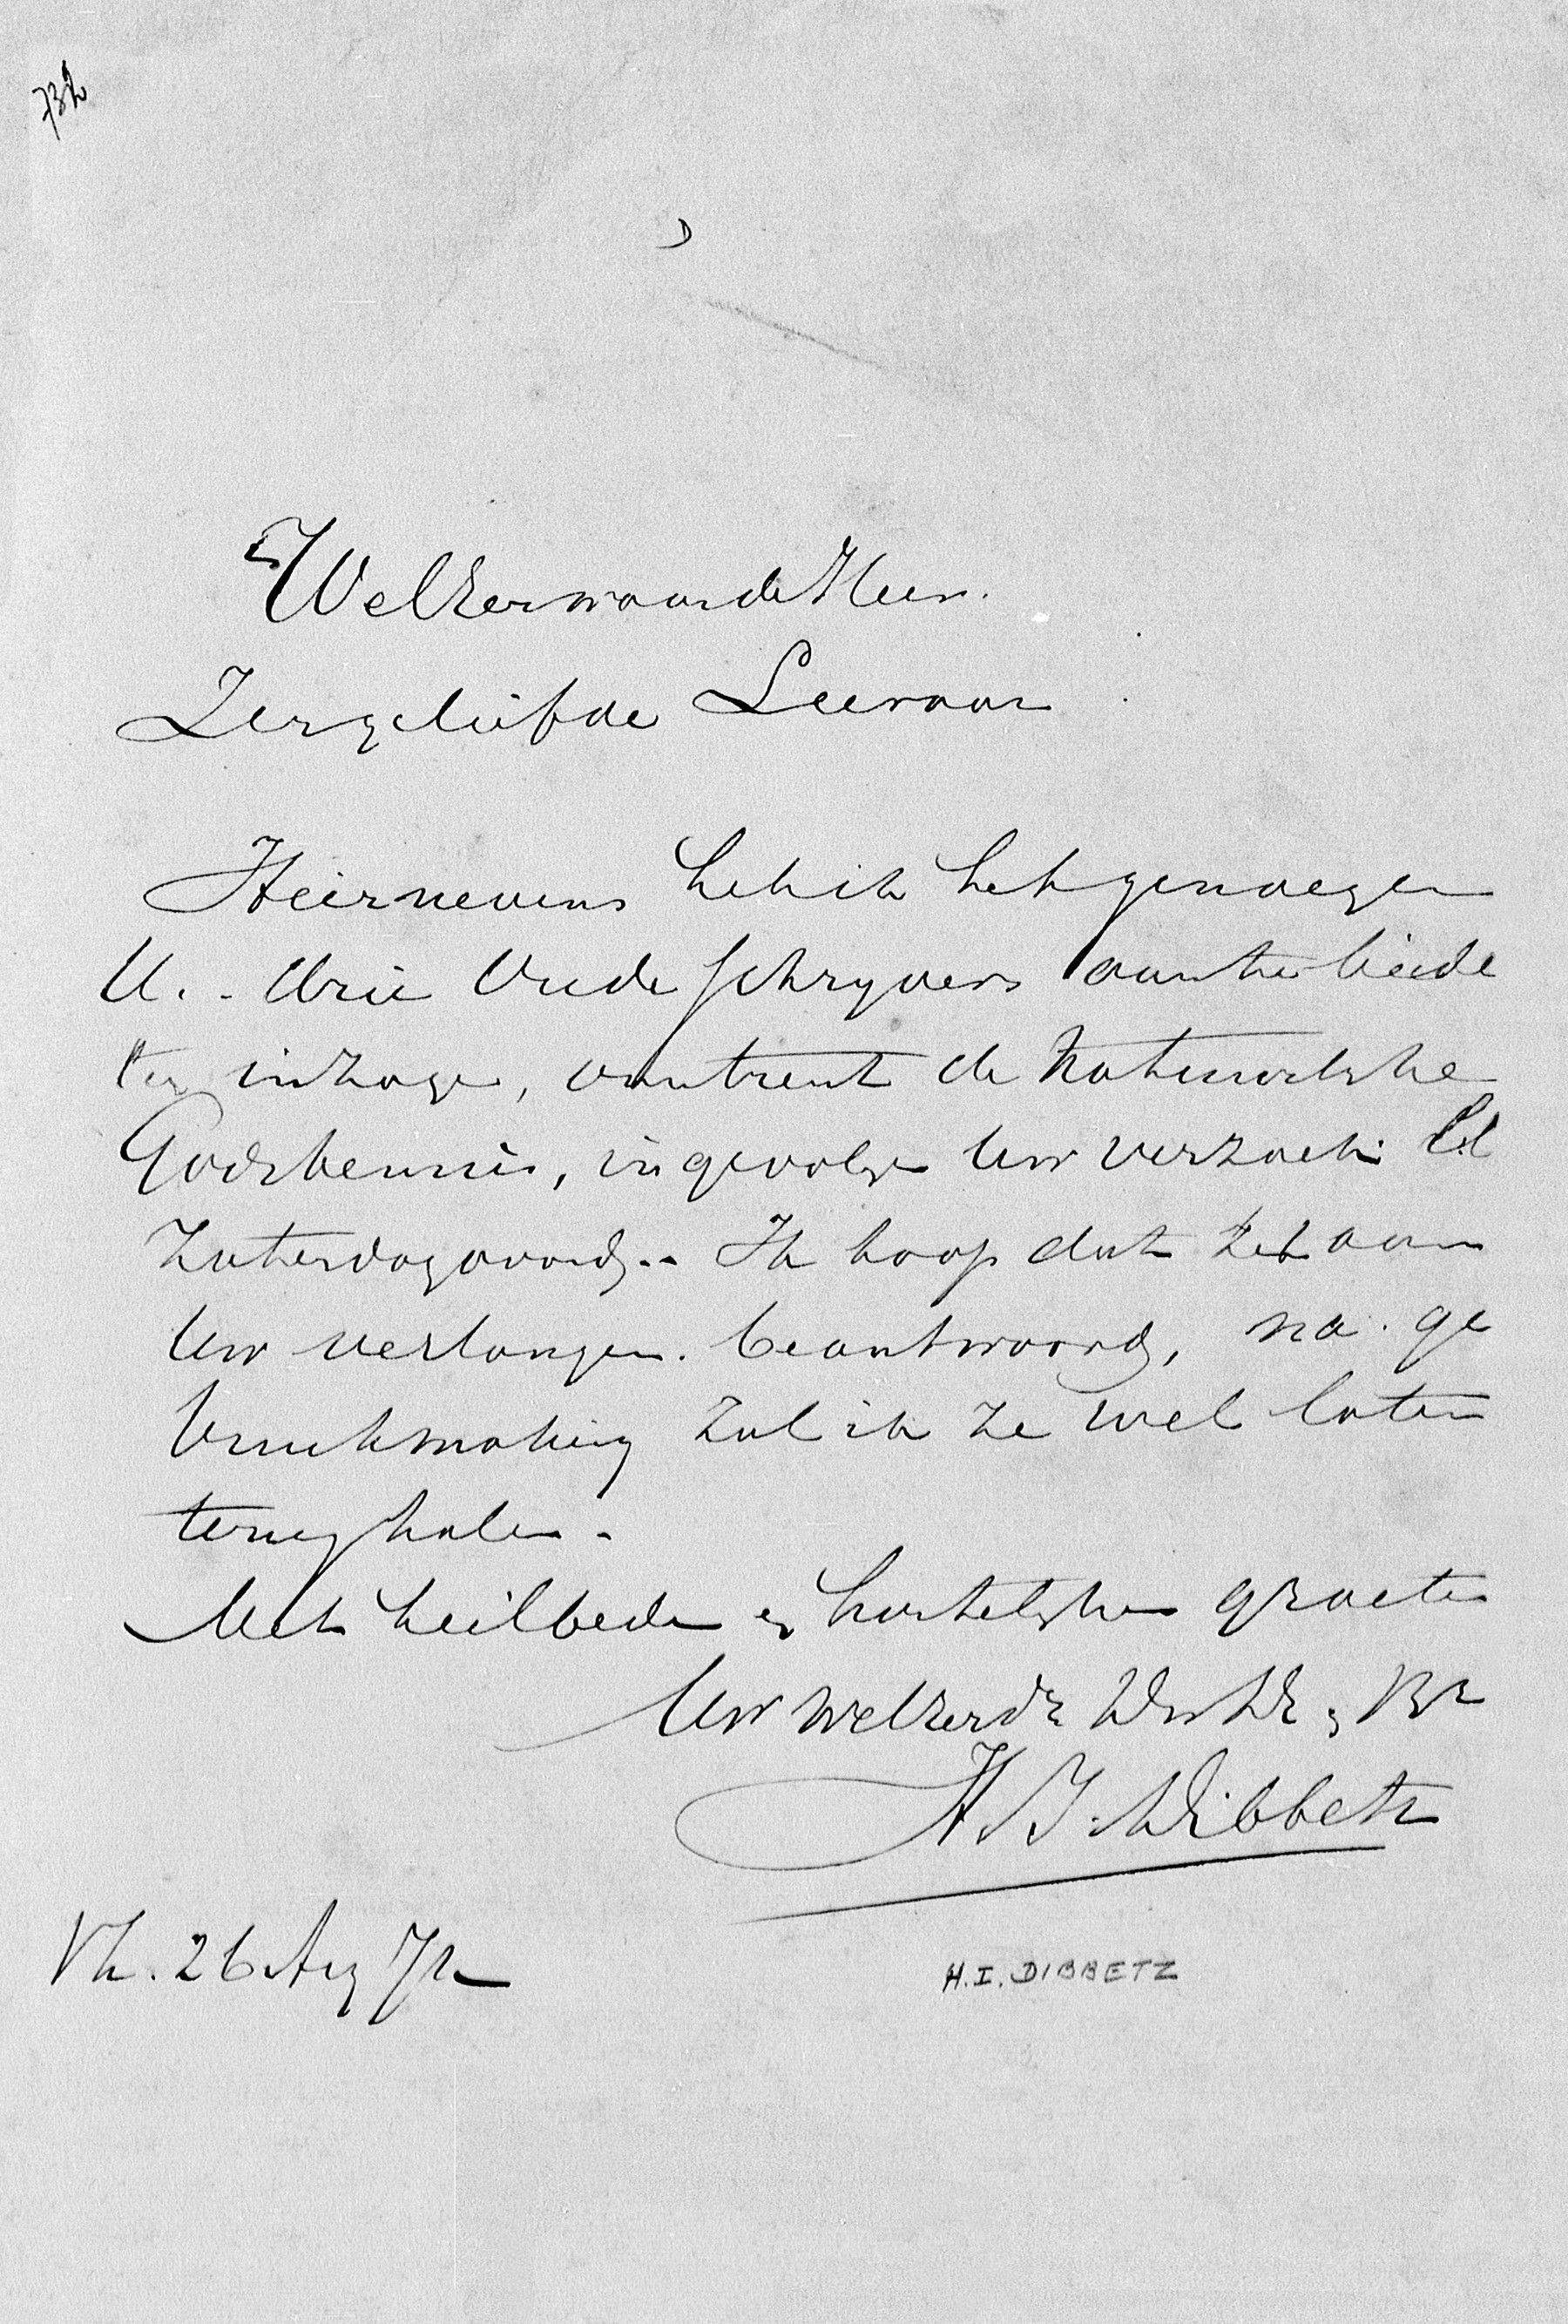 732
D
WelEerwaarde Heer.
Zeergeliefde Leeraar
Heirnevens heb ik het genoegen
U.. drie Oude schryvers aan te biede
ter inzage, omtrent de Natuurlyke
Godskennis, ingevolge Uw verzoek l.l
Zaterdagavond.. Ik hoop dat het aan
Uw verlangen. beantwoord, na. ge
bruikmaking zal ik ze wel laten
terug halen.
Met heilbede en hartelyke groete
Uw WelEerde Dw Dr en Br
H. I. Dibbetz
H.I. DIBBETZ
Vh. 26 Aug 72